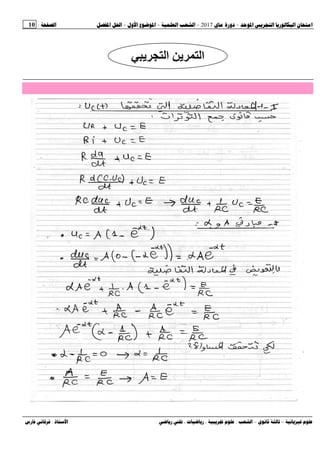 امتحان البكالوريا التجريبي الموحد - دورة ماي 2017 - الشعب العلمية - الموضوع الأول - الحل المفصل الصفحة 10
التمرين التجريبي
I-1- المعادلة التفاضلية التي تحققها Uc(t) :
حسب قانون جمع التوترات :
UR + Uc = E
Ri + Uc = E
R dq/dt + Uc = E
R d(C.Uc)/dt + Uc = E
RC duc/dt + Uc = E → duc/dt + 1/RC Uc = E/RC
2- عبارتي A و α :
• Uc = A(1 - e^-αt)
• duc/dt = A(0 - (-αe^-αt)) = αAe^-αt
بالتعويض في المعادلة التفاضلية
αAe^-αt + 1/RC . A(1 - e^-αt) = E/RC
αAe^-αt + A/RC - A/RC e^-αt = E/RC
Ae^-αt(α - 1/RC) + A/RC = E/RC
لكي تتحقق المساواة :
• α - 1/RC = 0 → α = 1/RC
• A/RC = E/RC → A = E.
علوم فيزيائية - ثالثة ثانوي - الشعب : علوم تجريبية - رياضيات - تقني رياضي الأستاذ : فرقاني فارس